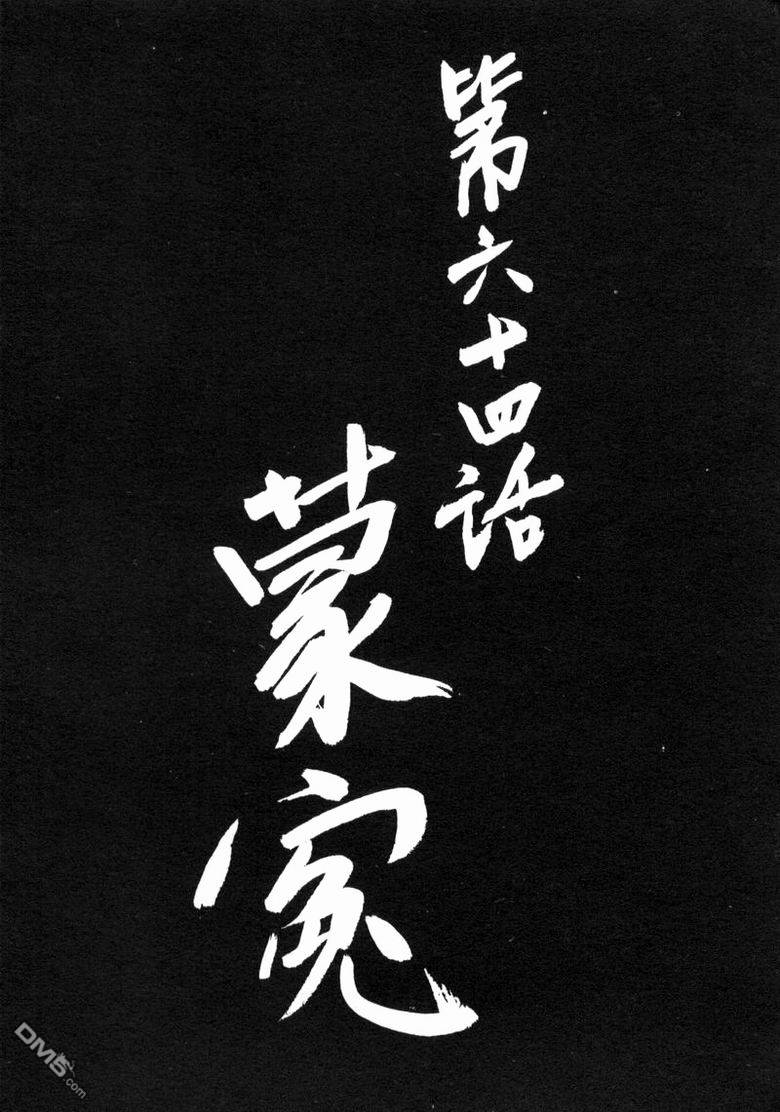 第六十四話
蒙冤
DM5.com